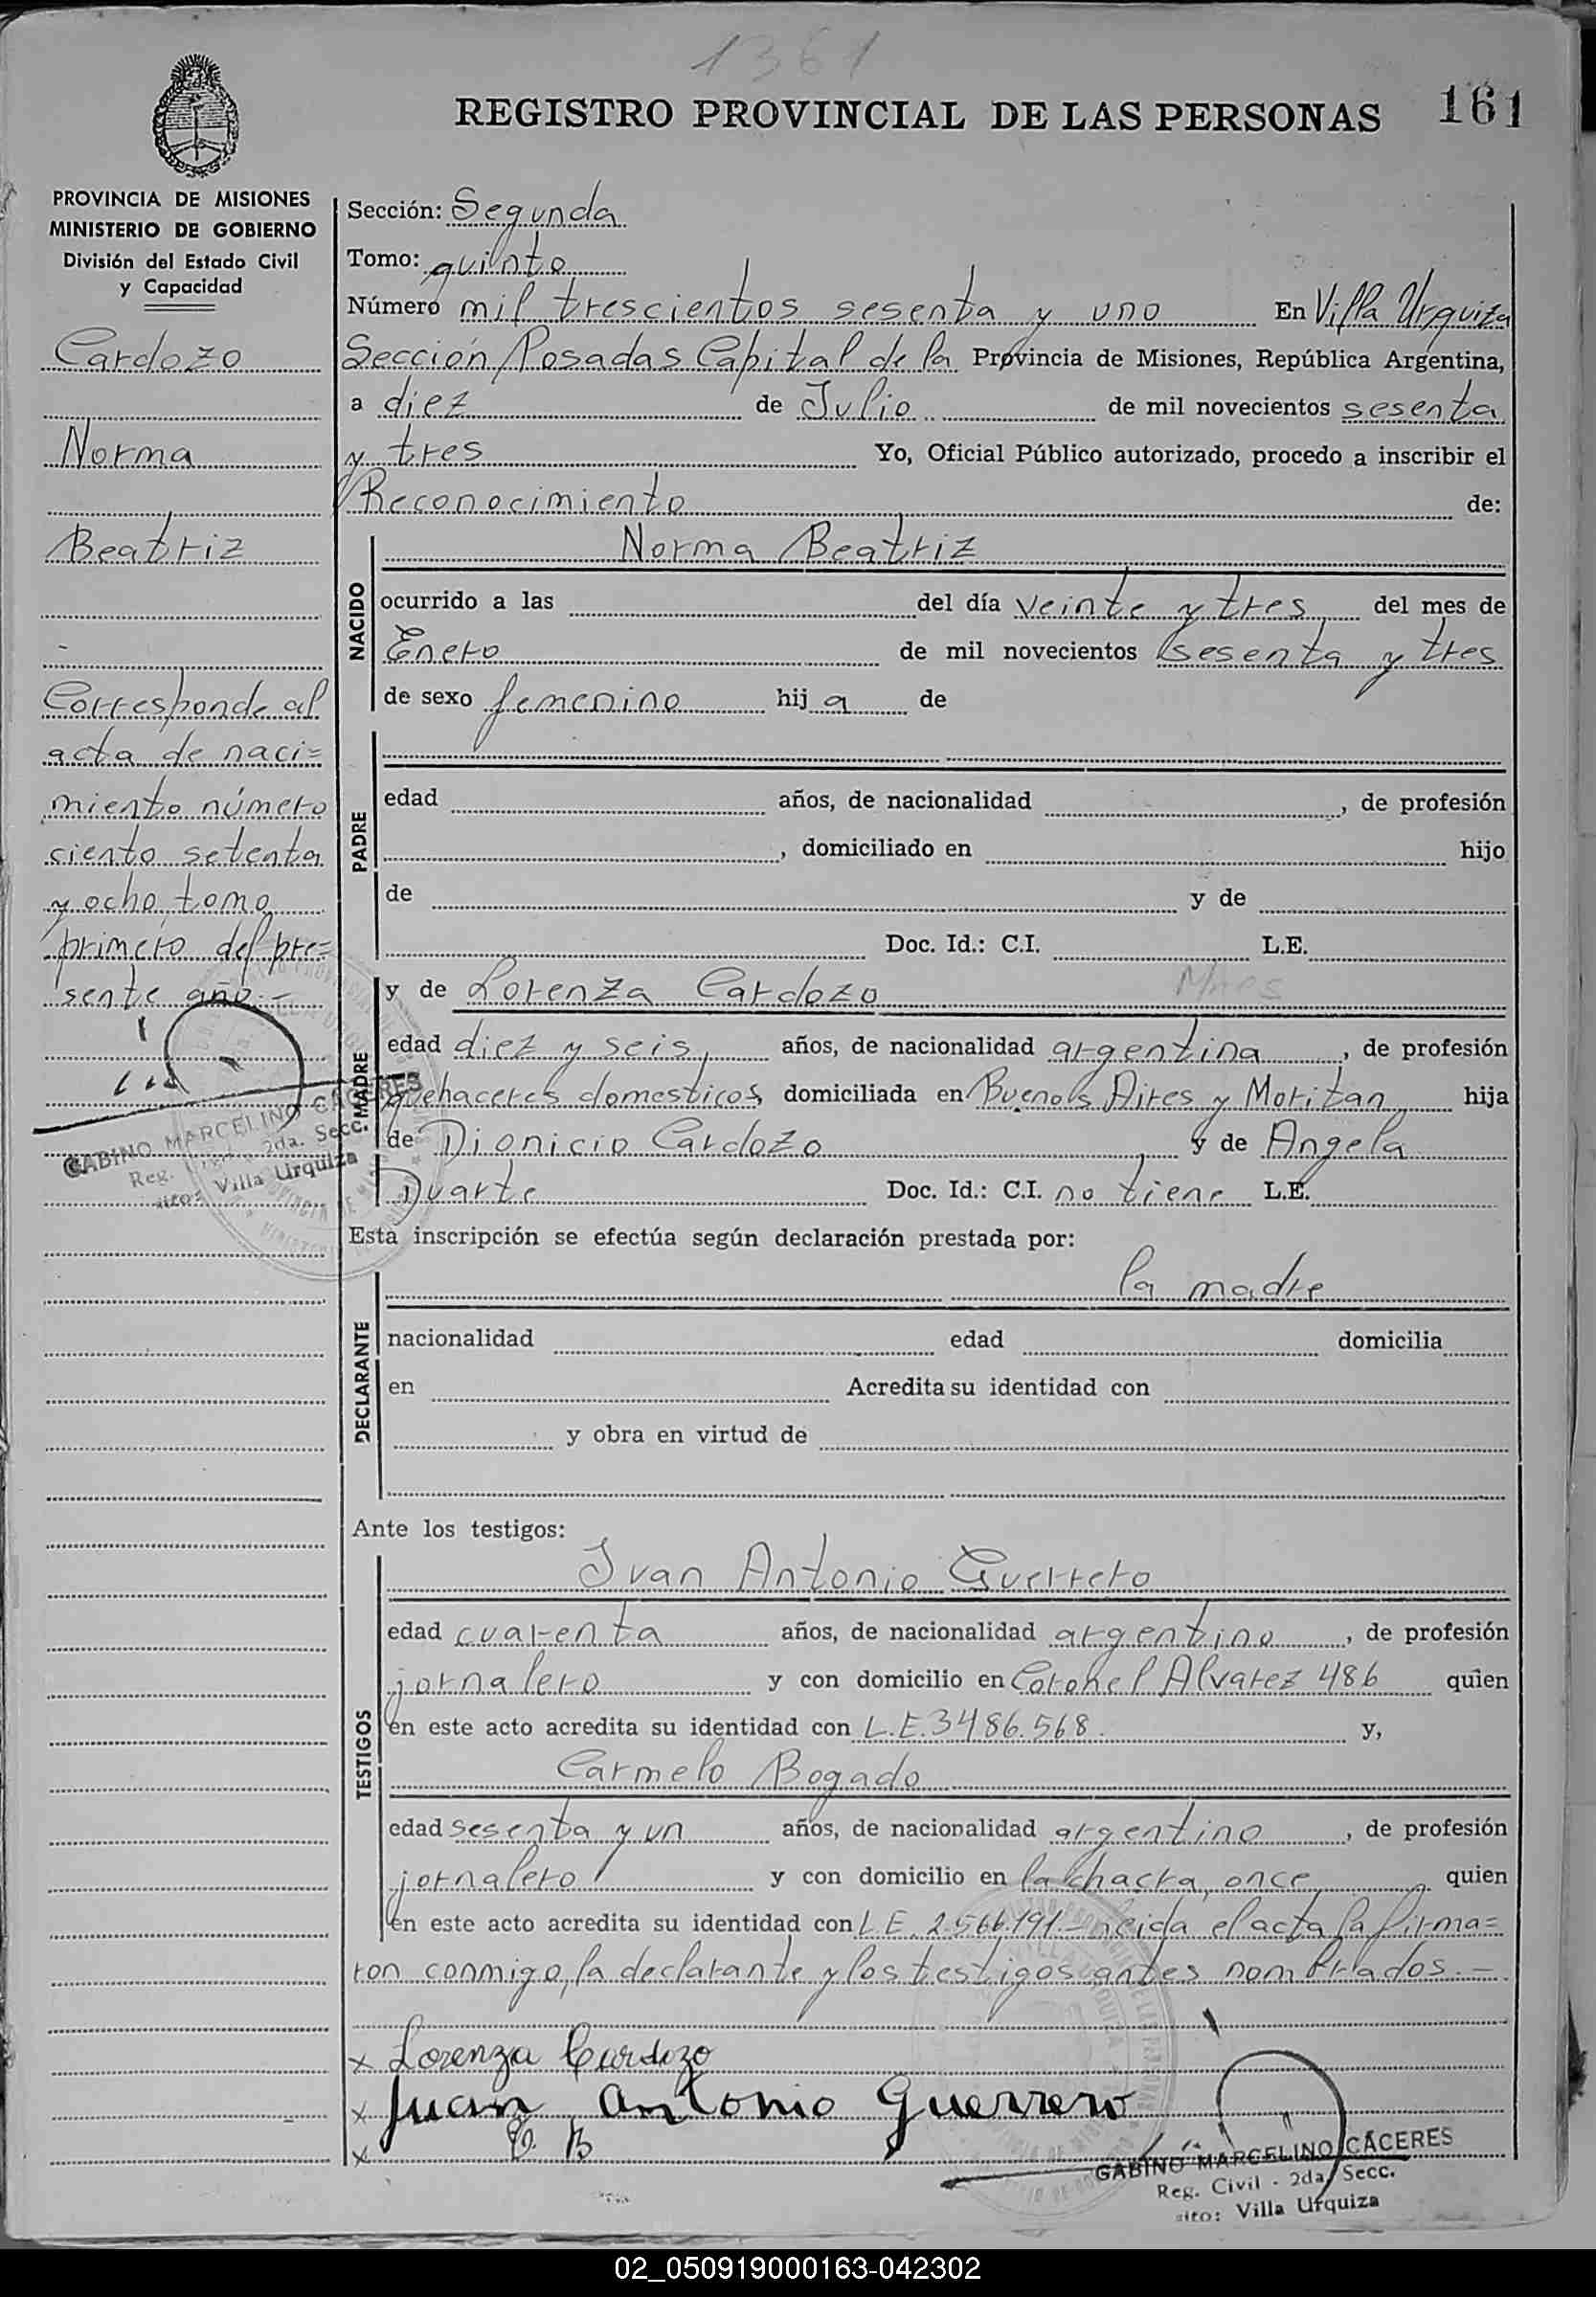 1361
REGISTRO PROVINCIAL DE LAS PERSONAS 161
PROVINCIA DE MISIONES
MINISTERIO DE GOBIERNO
División del Estado Civil
y Capacidad
Cardozo
Norma
Beatriz
Corresponde al
acta de naci=
miento número
ciento setenta
y ocho tomo
primero del pre=
sente año.-
GABINO MARCELINO CACERES
Reg. Civil - 2da. Secc.
sito: Villa Urquiza
Sección: Segunda
Tomo: quinto
Número mil trescientos sesenta y uno En Villa Urquiza
Sección Posadas Capital de la Provincia de Misiones, República Argentina,
a diez de Julio de mil novecientos sesenta
y tres Yo, Oficial Público autorizado, procedo a inscribir el
Reconocimiento de:
NACIDO
Norma Beatriz
ocurrido a las del día veinte y tres del mes de
Enero de mil novecientos sesenta y tres
de sexo femenino hij a de
PADRE
edad años, de nacionalidad , de profesión
, domiciliado en hijo
de y de
Doc. Id.: C.I. L.E.
MADRE
y de Lorenza Cardozo Mnes
edad diez y seis, años, de nacionalidad argentina , de profesión
quehaceres domesticos, domiciliada en Buenos Aires y Moritan, hija
de Dionicio Cardozo y de Angela
Duarte Doc. Id.: C.I. no tiene L.E.
Esta inscripción se efectúa según declaración prestada por:
la madre
DECLARANTE
nacionalidad edad domicilia
en Acredita su identidad con
y obra en virtud de
Ante los testigos:
TESTIGOS
Juan Antonio Guerrero
edad cuarenta años, de nacionalidad argentino , de profesión
jornalero y con domicilio en Coronel Alvarez 486 quien
en este acto acredita su identidad con L.E.3486.568. y,
Carmelo Bogado
edad sesenta y un años, de nacionalidad argentino , de profesión
jornalero y con domicilio en la chacra once quien
en este acto acredita su identidad con L.E. 2.566.191.- leida el acta la firma=
ron conmigo, la declarante y los testigos antes nombrados.-
x Lorenza Cardozo
x Juan Antonio Guerrero
x C. B
GABINO MARCELINO CÁCERES
Reg. Civil - 2da. Secc.
sito: Villa Urquiza
02_050919000163-042302